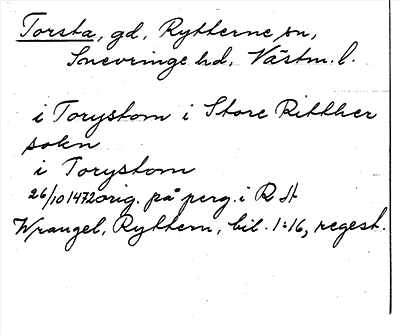 Torsta, gd, Rytterne sn,
Snevringe hd, Västm. l.
i Torystom i Store Ritther
sokn
i Torystom
26/10 1472 orig. på perg. i RA
Wrangel, Ryttern, bil. 1:16, regest.